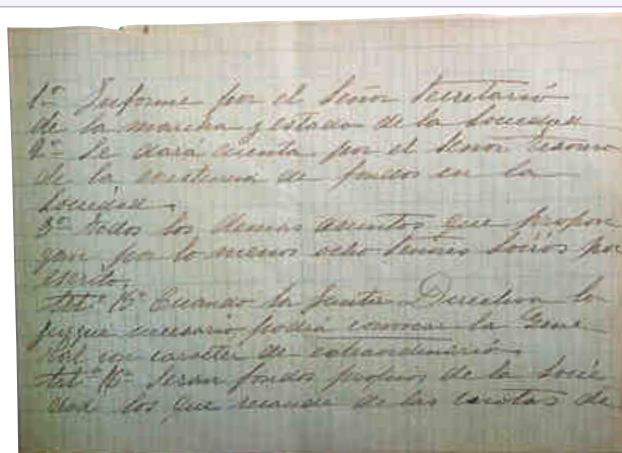 1º Informe por el Señor Secretario
de la marcha y estado de la Sociedad
2º Se dará cuenta por el Señor Tesorero
de la existencia de fondos en la
Sociedad.
3º Todos los demas asuntos que propon
gan por lo menos ocho Señores Socios por
escrito.
Art.º 15º Cuando la Junta Directiva lo
juzgue necesario podrá convocar la Gene-
ral con caracter de extraordinario.
Art.º 16º Seran fondos propios de la Socie
dad los que recaude de las cuotas de